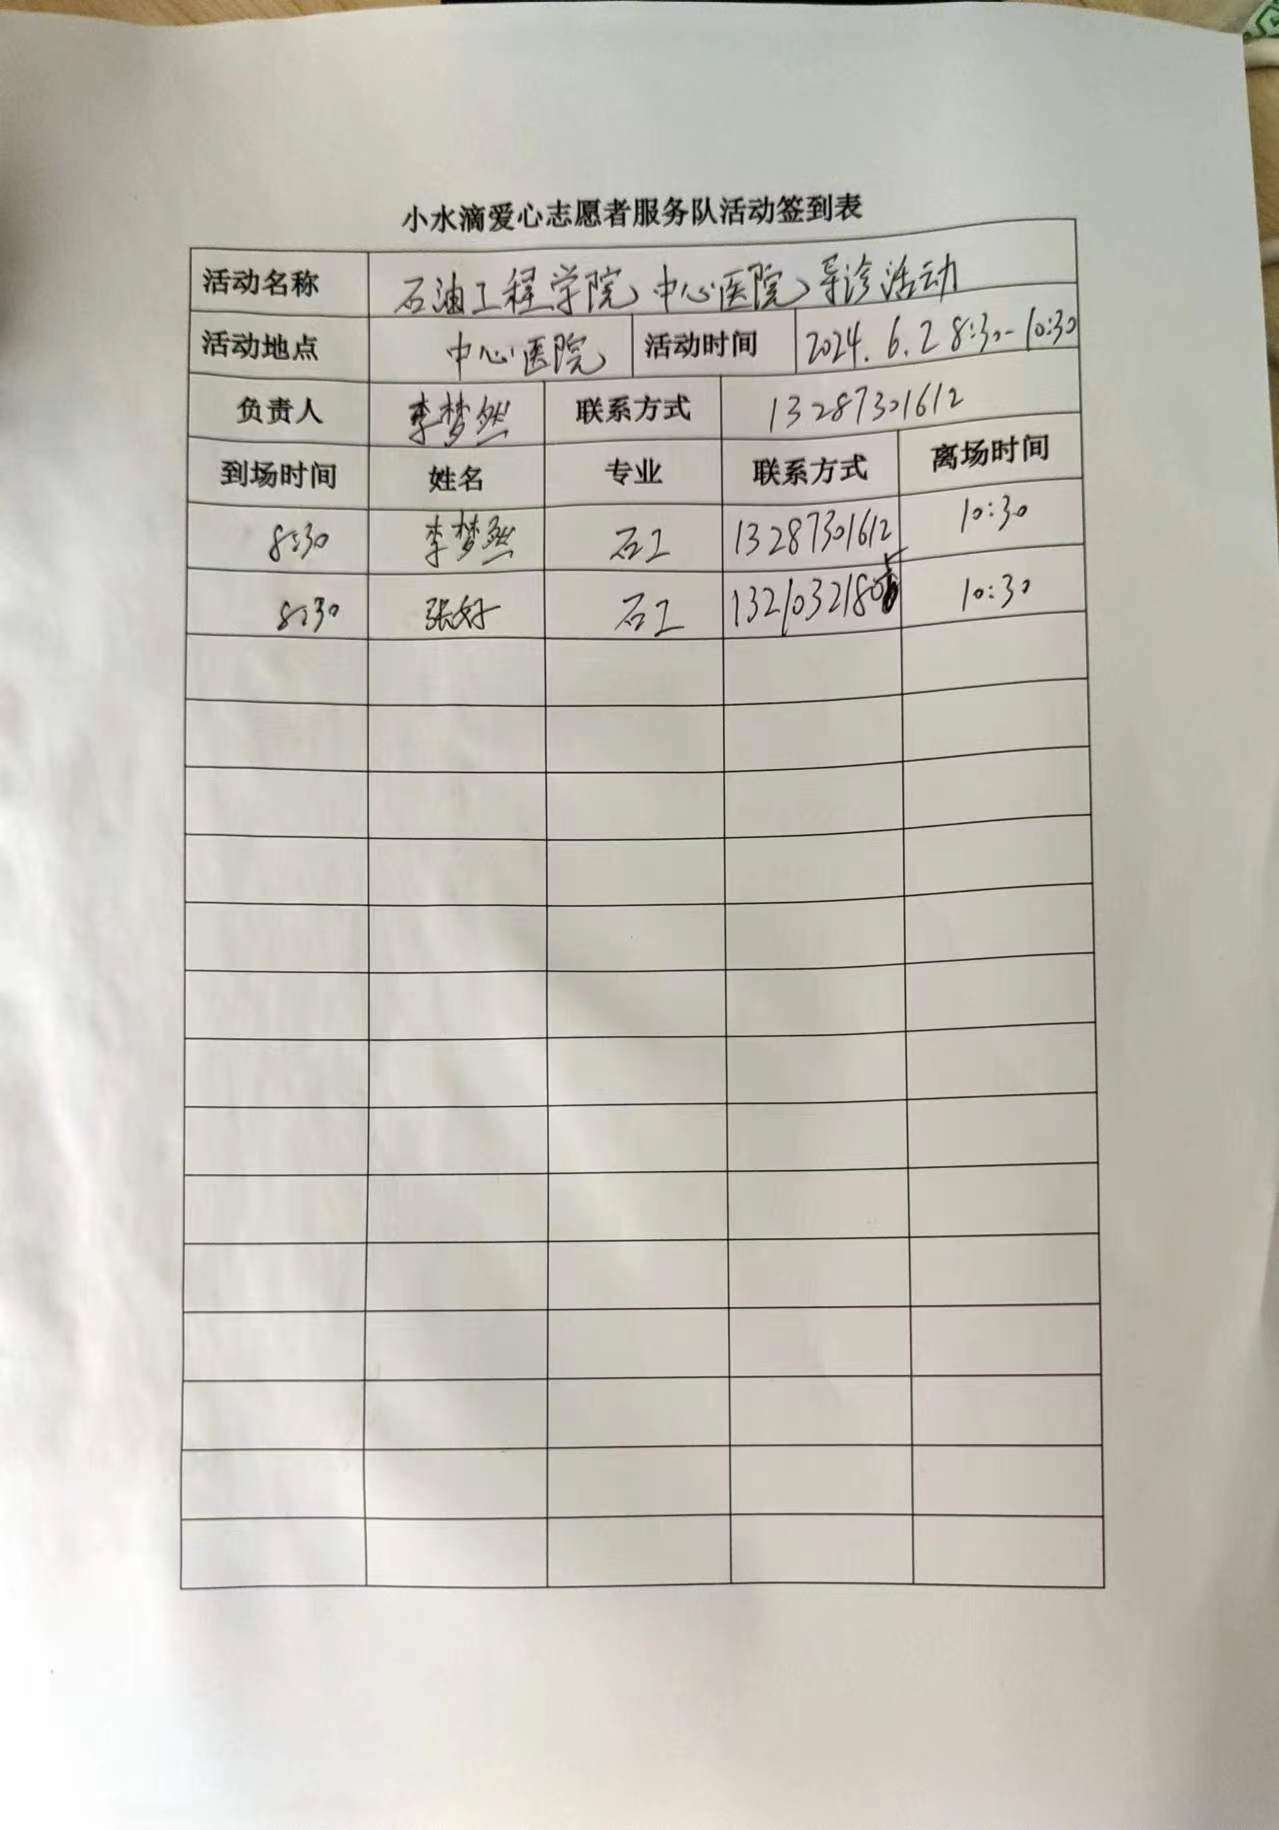 小水滴爱心志愿者服务队活动签到表
活动名称 石油工程学院、中心医院、导诊活动
活动地点 中心医院 活动时间 2024.6.2 8:30-10:30
负责人 李梦然 联系方式 13287301612
到场时间 姓名 专业 联系方式 离场时间
8:30 李梦然 石工 13287301612 10:30
8:30 张好 石工 13210321805 10:30